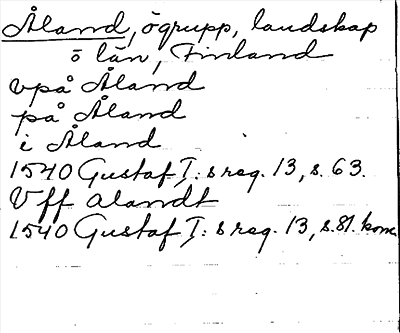 Åland, ögrupp, landskap
o län, Finland
vpå Åland
på Åland
i Åland
1540 Gustaf I: s reg. 13, s. 63.
Vff alandt
1540 Gustaf I: s reg. 13, s. 81. konc